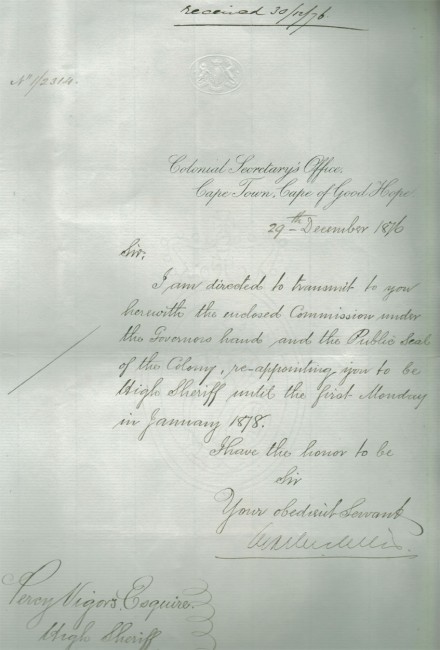 received 30/12/76.
No 1/2314.
Colonial Secretary's Office,
Cape Town, Cape of Good Hope
29th December 1876
Sir,
I am directed to transmit to you
herewith the enclosed Commission under
the Governors hand and the Public Seal
of the Colony, re-appointing you to be
High Sheriff until the first Monday
in January 1878.
I have the honor to be
Sir
Your obedient Servant
Percy Vigors Esquire.
High Sheriff